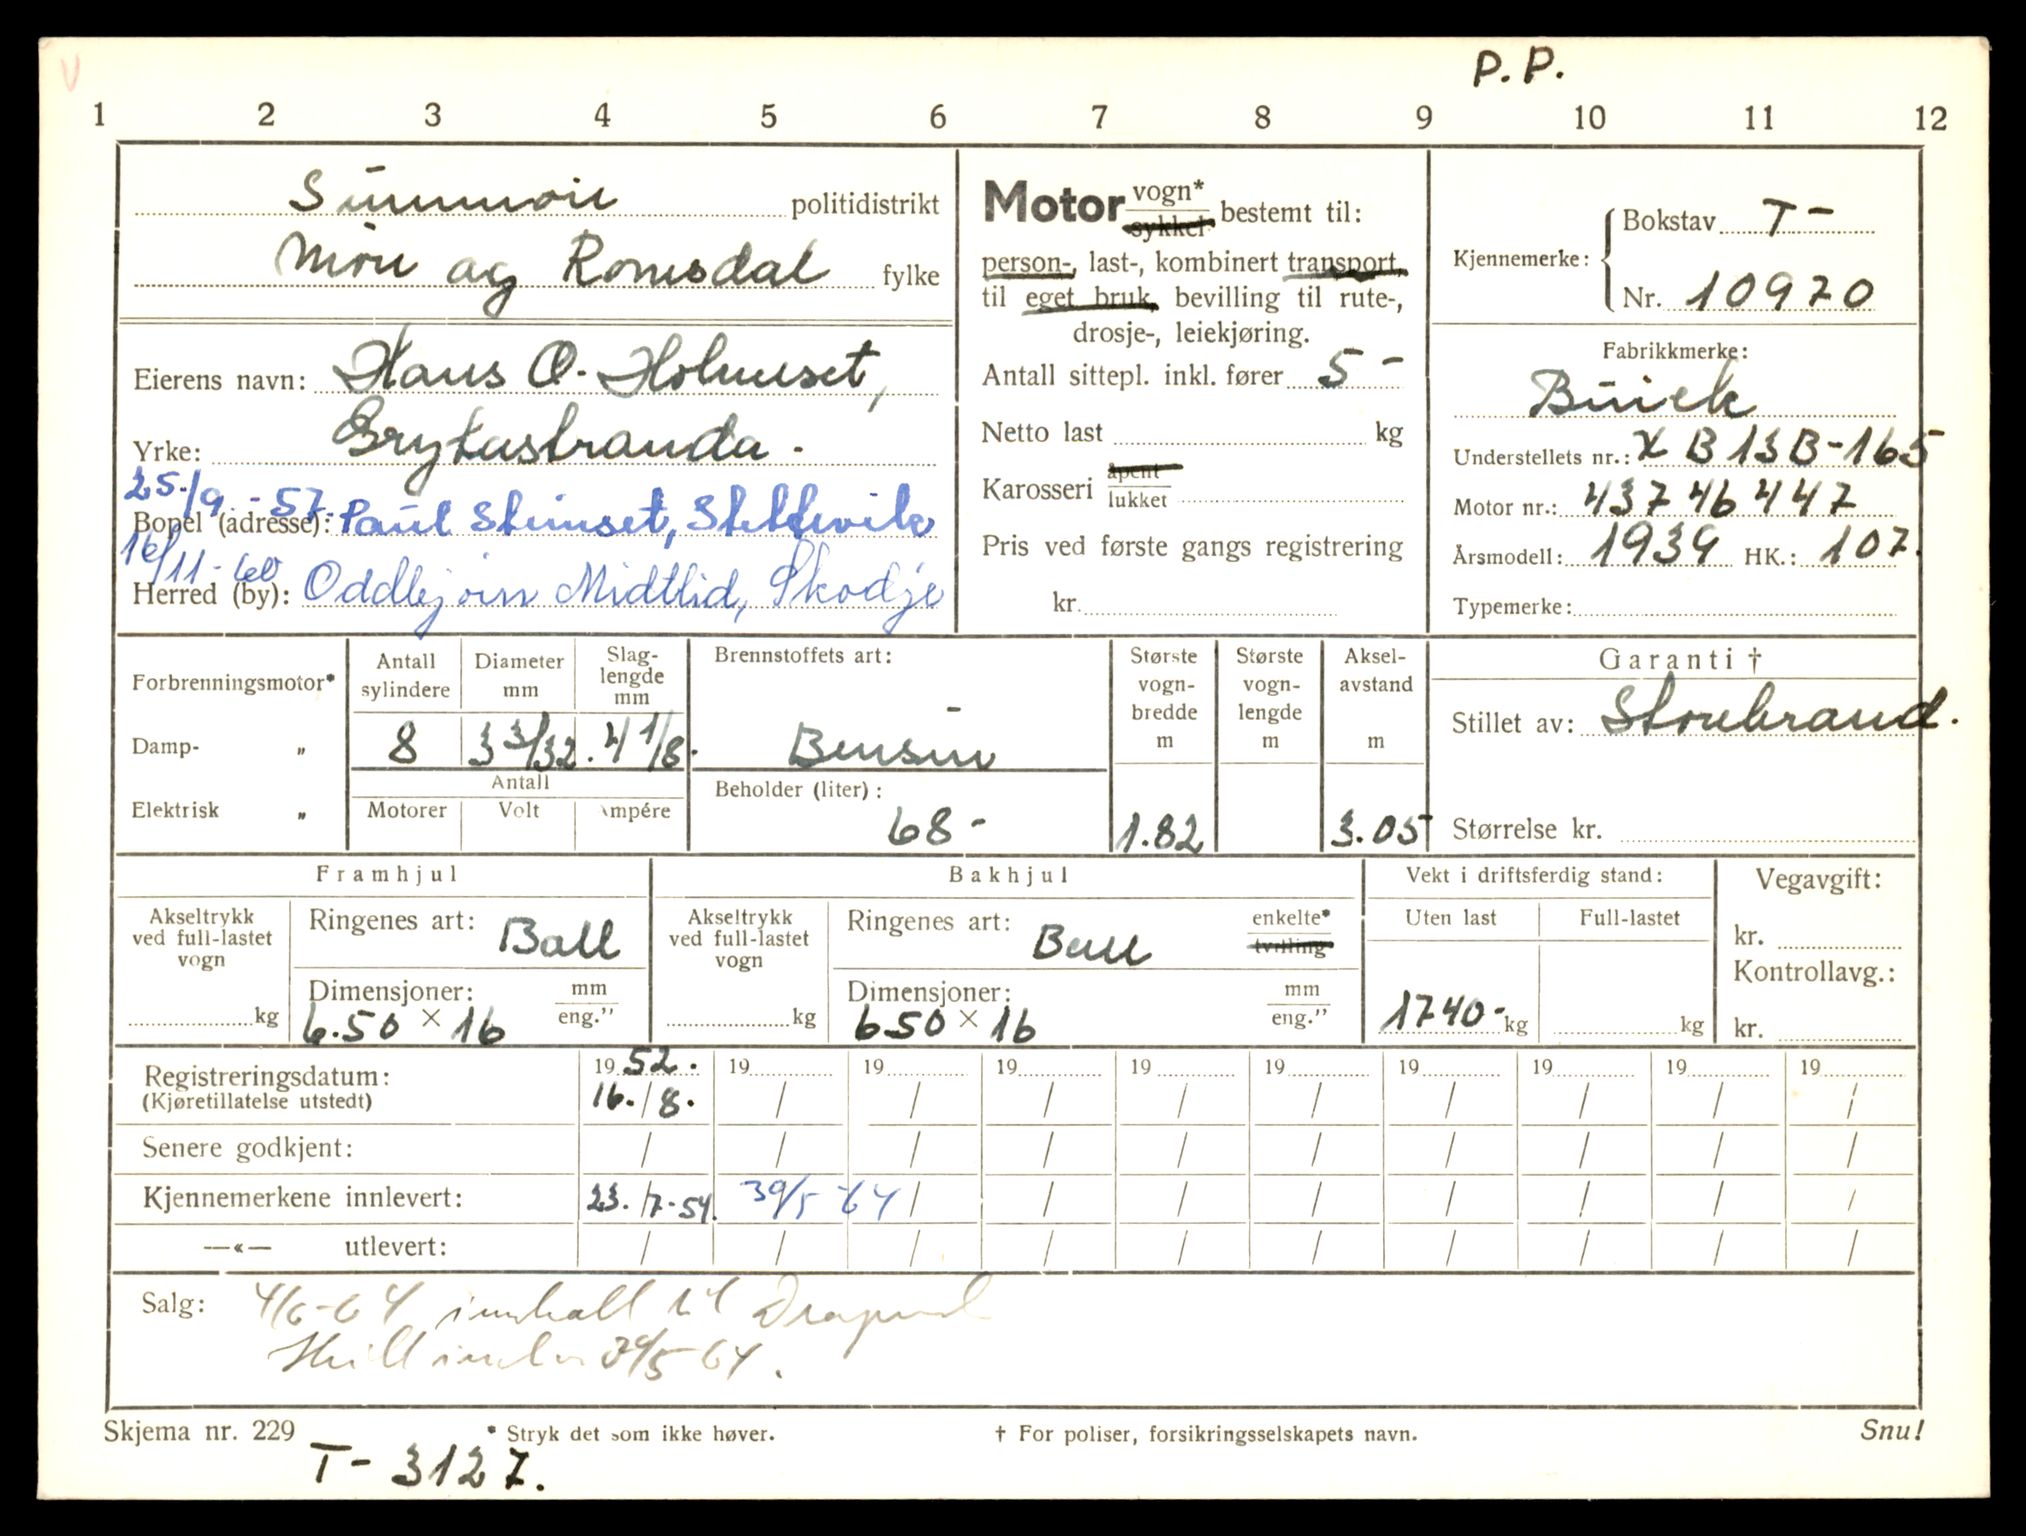 P.P.
1 2 3 4 5 6 7 8 9 10 11 12
Sunnmøre politidistrikt
Møre og Romsdal fylke
Eierens navn: Hans O. Holmeset,
Yrke: Grytastranda.
25./9.-57.
Bopel (adresse): Paul Stimset, Stettevik
16/11-60
Herred (by): Oddbjørn Midtlid, Skodje
Motor vogn* sykkel bestemt til:
person-, last-, kombinert transport,
til eget bruk, bevilling til rute-,
drosje-, leiekjøring.
Antall sittepl. inkl. fører 5-
Netto last kg
Karosseri åpent lukket
Pris ved første gangs registrering
kr.
Kjennemerke: Bokstav T-
Nr. 10970
Fabrikkmerke:
Buick
Understellets nr.: X B 13 B-165
Motor nr.: 43746447
Årsmodell: 1939 HK.: 107.
Typemerke:
Forbrenningsmotor*
Damp- „
Elektrisk „
Antall sylindere Diameter mm Slag-lengde mm
8 3 3/32. 4 1/8.
Antall
Motorer Volt Ampére
Brennstoffets art:
Bensin
Beholder (liter):
68-
Største vogn-bredde m
1.82
Største vogn-lengde m
Aksel-avstand m
3.05
Garanti †
Stillet av: Storebrand.
Størrelse kr.
Framhjul
Akseltrykk ved full-lastet vogn
kg
Ringenes art: Ball
Dimensjoner: mm eng."
6.50 × 16
Bakhjul
Akseltrykk ved full-lastet vogn
kg
Ringenes art: Ball
enkelte* tvilling
Dimensjoner: mm eng."
650 × 16
Vekt i driftsferdig stand:
Uten last Full-lastet
1740- kg kg
Vegavgift:
kr.
Kontrollavg.:
kr.
Registreringsdatum: 19 52. 19 19 19 19 19 19 19 19 19
(Kjøretillatelse utstedt) 16./8. / / / / / / / / /
Senere godkjent: / / / / / / / / / /
Kjennemerkene innlevert: 23./7-54. 30/5 64 / / / / / / / /
—«— utlevert: / / / / / / / / / /
Salg: 4/6-64 innkalt til
Skilt 30/5 64.
Skjema nr. 229
* Stryk det som ikke høver.
† For poliser, forsikringsselskapets navn.
Snu!
T-3127.